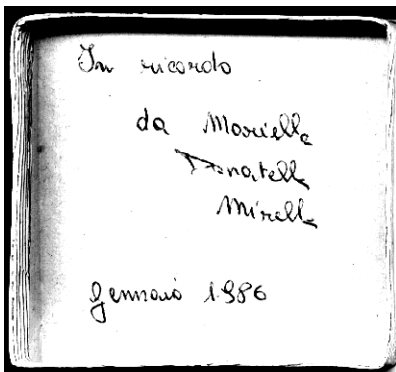 In ricordo
da Mariella
Donatella
Mirella
Gennaio 1986